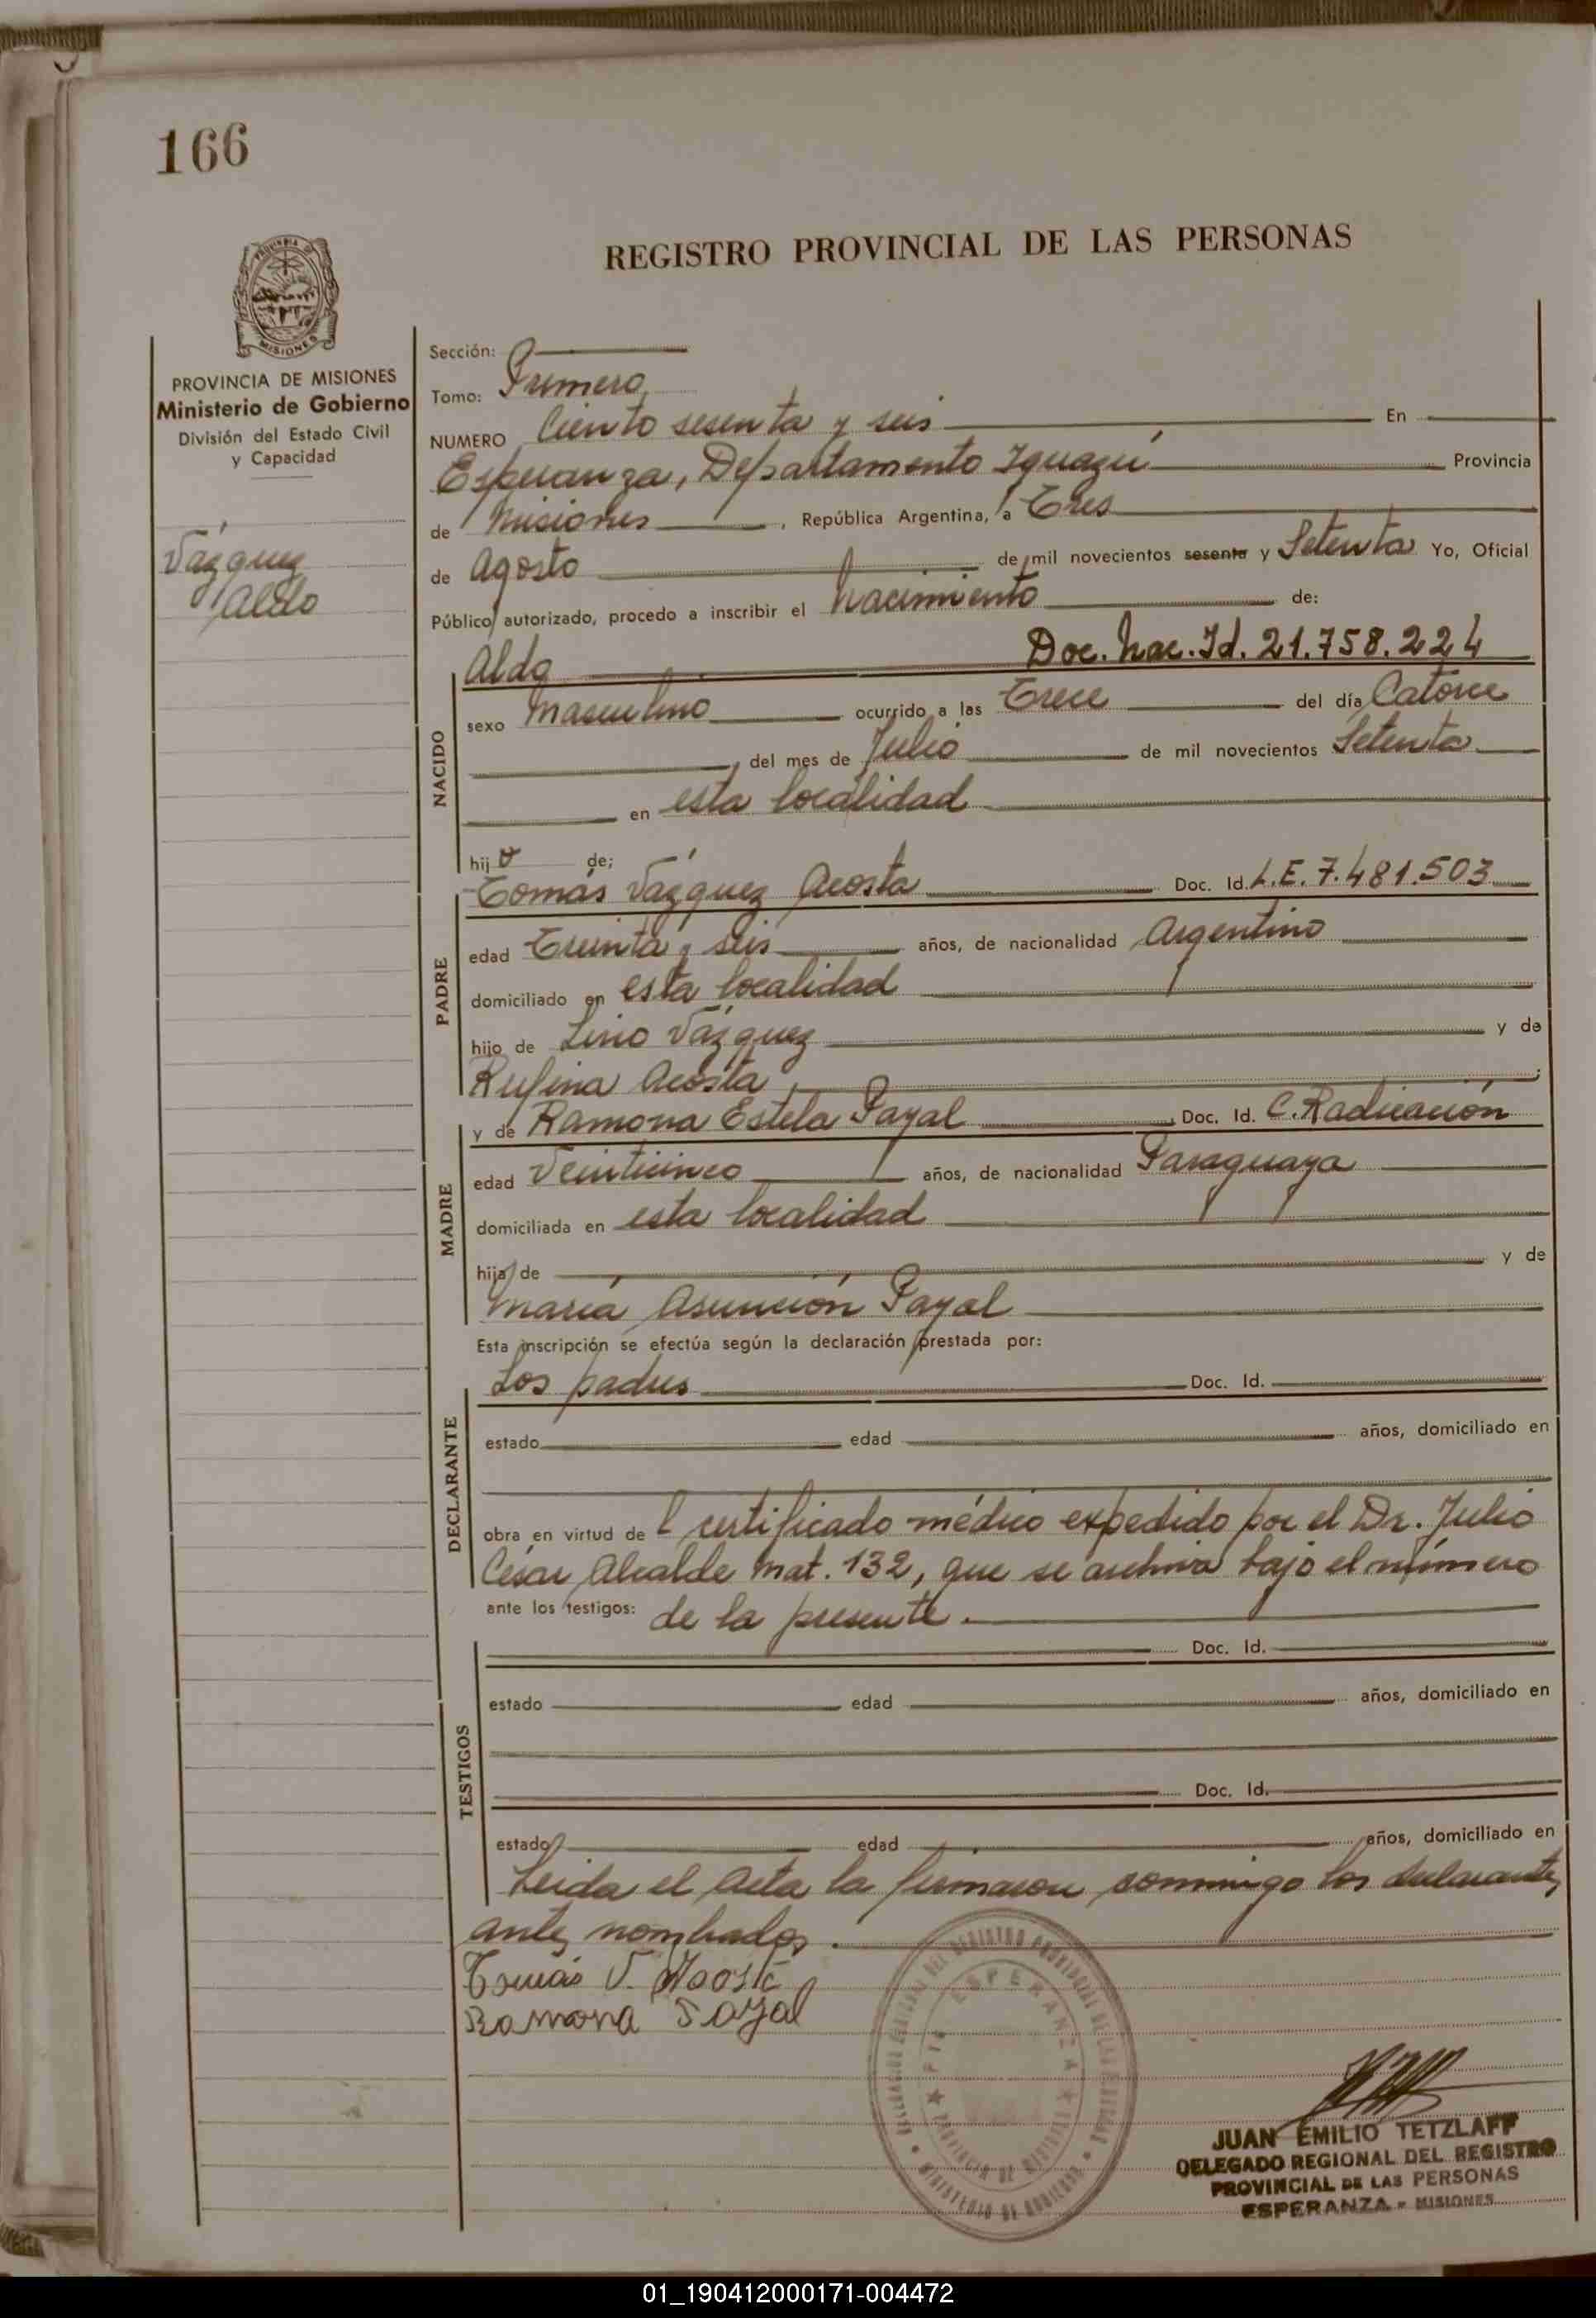 166
REGISTRO PROVINCIAL DE LAS PERSONAS
MISIONES
PROVINCIA DE MISIONES
Ministerio de Gobierno
División del Estado Civil
y Capacidad
Vázquez
Aldo
Sección:
Tomo: Primero
NUMERO Ciento sesenta y seis En
Esperanza, Departamento Iguazú Provincia
de Misiones, República Argentina, a Tres
de Agosto de mil novecientos sesenta y Setenta Yo, Oficial
Público autorizado, procedo a inscribir el nacimiento de:
Aldo Doc. Nac. Id. 21.758.224
NACIDO
sexo Masculino ocurrido a las Trece del día Catorce
, del mes de Julio de mil novecientos Setenta
en esta localidad
hijo de;
PADRE
Tomás Vázquez Acosta Doc. Id. L.E. 7.481.503
edad Treinta y seis años, de nacionalidad Argentino
domiciliado en esta localidad
hijo de Lino Vázquez y de
Rufina Acosta ;
MADRE
y de Ramona Estela Payal , Doc. Id. C. Radicación
edad Veinticinco años, de nacionalidad Paraguaya
domiciliada en esta localidad
hija de y de
María Asunción Payal
Esta inscripción se efectúa según la declaración prestada por:
DECLARANTE
Los padres Doc. Id.
estado edad años, domiciliado en
obra en virtud de l certificado médico expedido por el Dr. Julio
César Alcalde Mat. 132, que se archiva bajo el número
ante los testigos: de la presente.
TESTIGOS
Doc. Id.
estado edad años, domiciliado en
Doc. Id.
estado edad años, domiciliado en
Leida el Acta la firmaron conmigo los declarantes
antes nombrados.
Tomás V. Acosta
Ramona Payal
ESPERANZA
PROVINCIA DE MISIONES
MINISTERIO DE GOBIERNO
JUAN EMILIO TETZLAFF
DELEGADO REGIONAL DEL REGISTRO
PROVINCIAL DE LAS PERSONAS
ESPERANZA - MISIONES
01_190412000171-004472